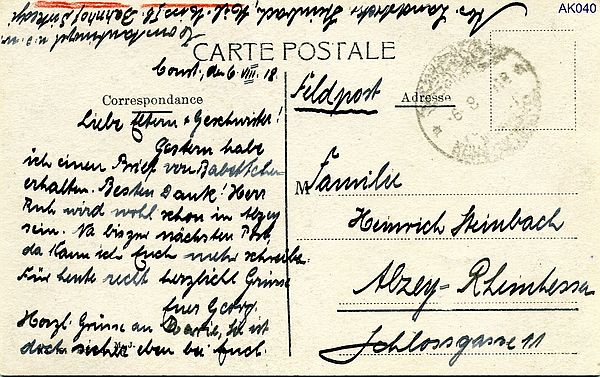 AK040
CARTE POSTALE
Const, den 6. VIII. 18.
Feldpost
Correspondance
Adresse
Liebe Eltern + Geschwister!
Gestern habe
ich einen Brief von Babettchen
erhalten. Besten Dank! Herr
Ruh wird wohl schon in Alzey
sein. Na bis zur nächsten Post,
da kann ich Euch mehr schreiben.
Für heute recht herzliche Grüsse
Euer Georg.
Herzl. Grüsse an
ist
doch sicher eben bei Euch.
M Familie
Heinrich Steinbach
Alzey - Rheinhessen
Schlossgasse 11